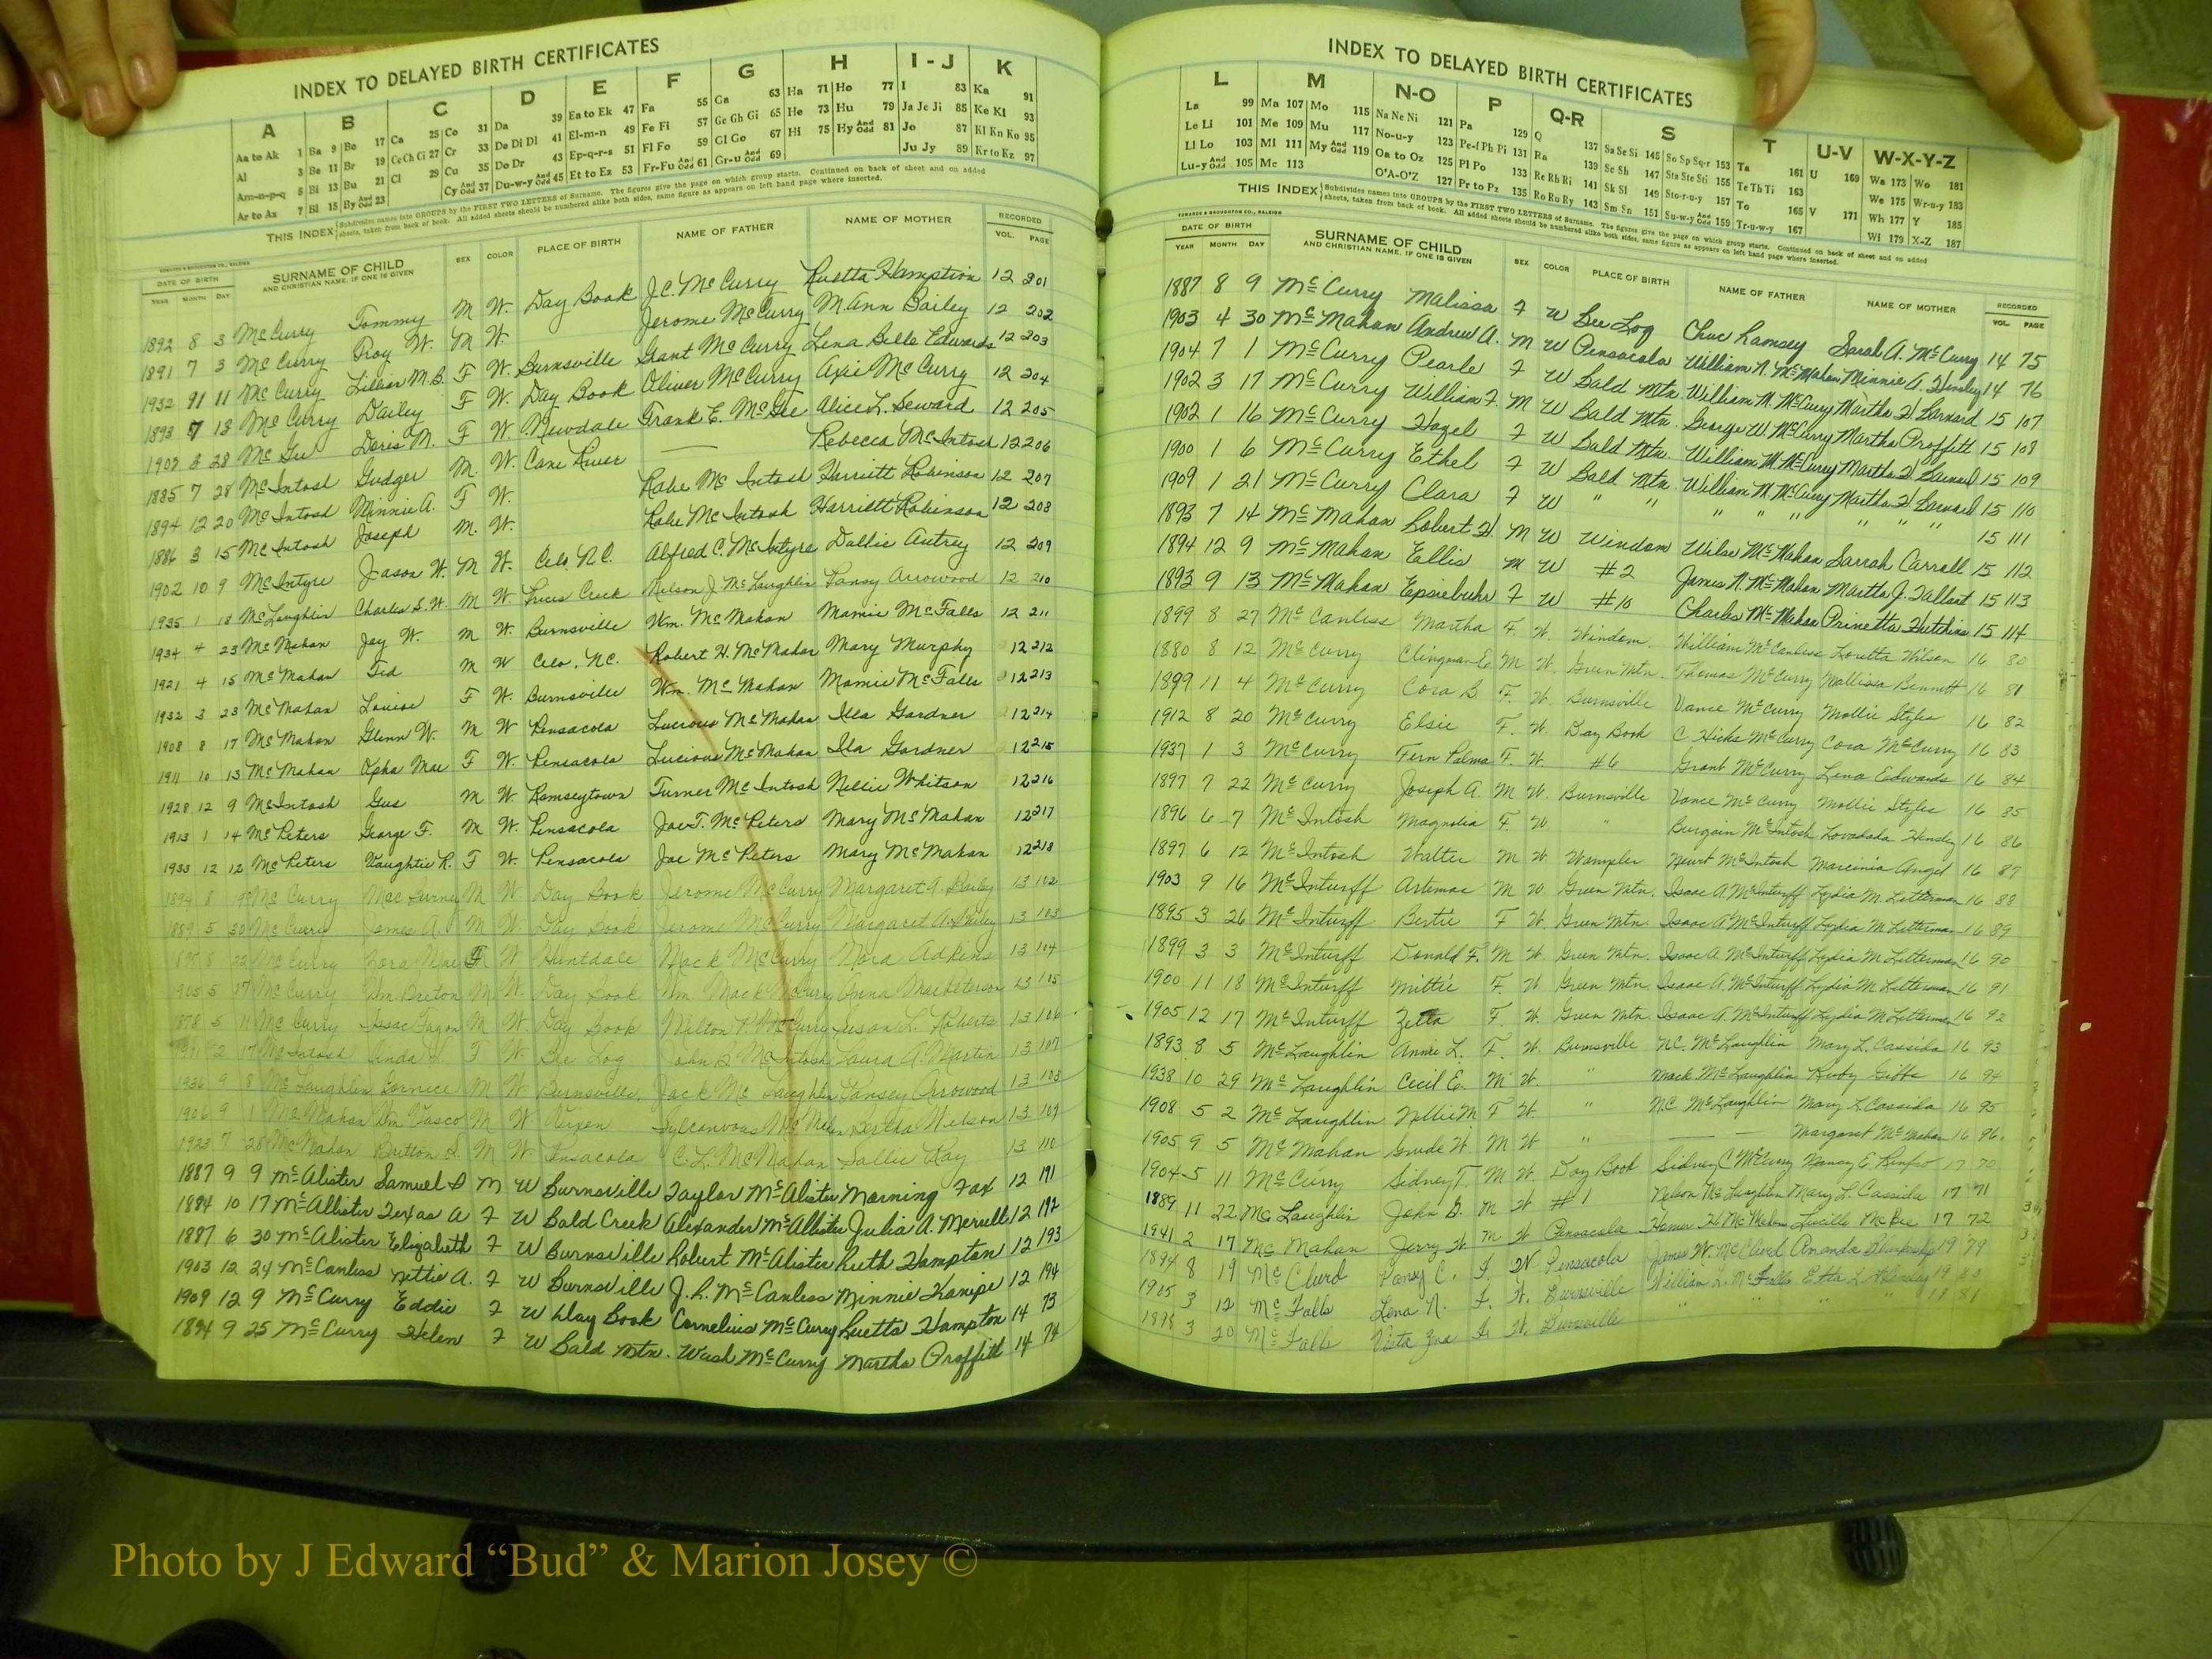 INDEX TO DELAYED BIRTH CERTIFICATES
A B C D E F G H I - J K
Aa to Ak 1 Ba 9 Bo 17 Ca 25 Co 31 Da 39 Ea to Ek 47 Fa 55 Ga 63 Ha 71 Ho 77 I 83 Ka 91
Al 3 Be 11 Br 19 Ce Ch Ci 27 Cr 33 De Di Dl 41 El-m-n 49 Fe Fi 57 Ge Gh Gi 65 He 73 Hu 79 Ja Je Ji 85 Ke Kl 93
Am-n-p-q 5 Bi 13 Bu 21 Cl 29 Cu 35 Do Dr 43 Ep-q-r-s 51 Fl Fo 59 Gl Go 67 Hi 75 Hy And Odd 81 Jo 87 Kl Kn Ko 95
Ar to Az 7 Bl 15 By And Odd 23 Cy And Odd 37 Du-w-y And Odd 45 Et to Ez 53 Fr-Fu And Odd 61 Gr-u And Odd 69 Ju Jy 89 Kr to Kz 97
THIS INDEX Subdivides names into GROUPS by the FIRST TWO LETTERS of Surname. The figures give the page on which group starts. Continued on back of sheet and on added
sheets, taken from back of book. All added sheets should be numbered alike both sides, same figure as appears on left hand page where inserted.
DATE OF BIRTH SURNAME OF CHILD SEX COLOR PLACE OF BIRTH NAME OF FATHER NAME OF MOTHER RECORDED
YEAR MONTH DAY AND CHRISTIAN NAME, IF ONE IS GIVEN VOL. PAGE
1892 8 3 McCurry Tommy M W. Day Book J.C. McCurry Ruetta Hamption 12 201
1891 7 3 McCurry Roy W. M W. Jerome McCurry M. Ann Bailey 12 202
1932 11 McCurry Lillian M.B. F W. Burnsville Grant McCurry Lena Belle Edwards 12 203
1893 7 13 McCurry Dailey F W. Day Book Oliver McCurry McCurry 12 204
1907 3 28 McGee Doris M. F W. Newdale Frank E. McGee Alice L. Seward 12 205
1885 7 28 McIntosh Gudger M. W. Cane River Rebecca McIntosh 12 206
1894 12 20 McIntosh Minnie A. F W. Rabe McIntosh Harriett Robinson 12 207
1886 3 15 McIntosh Joseph M. W. Rabe McIntosh Harriett Robinson 12 208
1902 10 9 McIntyre Jason W. M W. Celo, N.C. Alfred C. McIntyre Dollie Autrey 12 209
1935 1 18 McLaughlin Charles S.W. M W. Prices Creek Nelson J. McLaughlin Pansy Arrowood 12 210
1934 4 23 McMahan Jay W. M W. Burnsville Wm. McMahan Mamie McFalls 12 211
1921 4 15 McMahan Ted M W Celo, N.C. Robert H. McMahan Mary Murphy 12 212
1932 3 23 McMahan Louise F W. Burnsville Wm. McMahan Mamie McFalls 12 213
1908 8 17 McMahan Glenn W. M W Pensacola Lucious McMahan Illa Gardner 12 214
1911 10 13 McMahan Opha Mae F W. Pensacola Lucious McMahan Ila Gardner 12 215
1928 12 9 McIntosh Gus M W. Ramseytown Turner McIntosh Nellie Whitson 12 216
1913 1 14 McPeters George F. M W. Pensacola Joe T. McPeters Mary McMahan 12 217
1933 12 12 McPeters Vaughtie R. F W. Pensacola Joe McPeters Mary McMahan 12 218
1894 8 McCurry Mac M W. Day Book Jerome McCurry Margaret A. Bailey 13 102
1889 5 30 McCurry James A. M W. Day Book Jerome McCurry Margaret A. Bailey 13 103
22 McCurry Cora Mae F W Huntdale Mack McCurry Nora Adkins 13 104
1905 5 17 McCurry Wm Breton M W. Day Book Wm. Mack McCurry Anna Mae Peterson 13 105
1878 5 11 McCurry Issac Fagon M W Day Book Milton P. McCurry Susan L. Roberts 13 106
2 17 McIntosh Anda F W. Bee Log John B McIntosh Laura A. Martin 13 107
1936 9 8 McLaughlin Cornice M W Burnsville, Jack McLaughlin Pansey Arrowood 13 108
1906 9 1 McMahan Wm Vasco M W. Vixen Sylcanvous McMahan Bertha Nelson 13 109
1923 7 28 McMahan Britton S M W. Pensacola C.L. McMahan Sallie Ray 13 110
1887 9 9 McAlister Samuel D M W Burnsville Taylor McAlister Morning Fox 12 191
1884 10 17 McAllister Texas A F W Bald Creek Alexander McAllister Julia A. Merrell 12 192
1887 6 30 McAlister Elizabeth F W Burnsville Robert McAlister Ruth Hampton 12 193
1903 12 24 McCanless Nettie A. F W Burnsville J.R. McCanless Minnie Kanipe 12 194
1909 12 9 McCurry Eddie F W Day Book Cornelius McCurry Ruetta Hampton 14 73
1894 9 25 McCurry Helen F W Bald Mtn. Wash McCurry Martha Proffitt 14 74
INDEX TO DELAYED BIRTH CERTIFICATES
L M N-O P Q-R S T U-V W-X-Y-Z
La 99 Ma 107 Mo 115 Na Ne Ni 121 Pa 129 Q 137 Sa Se Si 145 So Sp Sq-r 153 Ta 161 U 169 Wa 173 Wo 181
Le Li 101 Me 109 Mu 117 No-u-y 123 Pe-f Ph Pi 131 Ra 139 Sc Sh 147 Sta Ste Sti 155 Te Th Ti 163 We 175 Wr-u-y 183
Ll Lo 103 Mi 111 My And Odd 119 Oa to Oz 125 Pl Po 133 Re Rh Ri 141 Sk Sl 149 Sto-r-u-y 157 To 165 V 171 Wh 177 Y 185
Lu-y And Odd 105 Mc 113 O'A-O'Z 127 Pr to Pz 135 Ro Ru Ry 143 Sm Sn 151 Su-w-y And Odd 159 Tr-u-w-y 167 Wi 179 X-Z 187
THIS INDEX Subdivides names into GROUPS by the FIRST TWO LETTERS of Surname. The figures give the page on which group starts. Continued on back of sheet and on added
sheets, taken from back of book. All added sheets should be numbered alike both sides, same figure as appears on left hand page where inserted.
DATE OF BIRTH SURNAME OF CHILD SEX COLOR PLACE OF BIRTH NAME OF FATHER NAME OF MOTHER RECORDED
YEAR MONTH DAY AND CHRISTIAN NAME, IF ONE IS GIVEN VOL. PAGE
1887 8 9 McCurry Malissa F W Bee Log Chuc Ramsey Sarah A. McCurry 14 75
1903 4 30 McMahan Andrew A. M W Pensacola William N. McMahan Minnie A. Hensley 14 76
1904 7 1 McCurry Pearle F W Bald Mtn. William M. McCurry Martha H Barnard 15 107
1902 3 17 McCurry William F. M W Bald Mtn. George W. McCurry Martha Proffitt 15 108
1902 1 16 McCurry Hazel F W Bald Mtn. William M. McCurry Martha H Barnard 15 109
1900 1 6 McCurry Ethel F W Bald Mtn. William M McCurry Martha H Barnard 15 110
1909 1 21 McCurry Clara F W " " " " " " " " " 15 111
1893 7 14 McMahan Robert H. M W Windom Wilse McMahan Sarrah Carroll 15 112
1894 12 9 McMahan Ellis M W #2 James N. McMahan Martha J. Tallant 15 113
1893 9 13 McMahan Epsiebuhr F W #10 Charles McMahan Prinetta Hutchins 15 114
1899 8 27 McCanless Martha F. W. Windom. William McCanless Loretta Wilson 16 80
1880 8 12 McCurry Clingman E. M W. Green Mtn. Thomas McCurry Mallissa Bennett 16 81
1899 11 4 McCurry Cora B F. W. Burnsville Vance McCurry Mollie Styles 16 82
1912 8 20 McCurry Elsie F. W. Day Book C. Hicks McCurry Cora McCurry 16 83
1937 1 3 McCurry Fern Palma F. W. #6 Grant McCurry Lena Edwards 16 84
1897 7 22 McCurry Joseph A. M W. Burnsville Vance McCurry Mollie Styles 16 85
1896 6 7 McIntosh Magnolia F. W. " Burgain McIntosh Lovadada Hensley 16 86
1897 6 12 McIntosh Walter M W. Wampler Newt McIntosh Marcinia Angel 16 87
1903 9 16 McInturff Artemac M W. Green Mtn. Isaac A McInturff Lydia M. Letterman 16 88
1895 3 26 McInturff Bertie F W. Green Mtn. Isaac A McInturff Lydia M Letterman 16 89
1899 3 3 McInturff Donald F. M W. Green Mtn. Isaac A McInturff Lydia M Letterman 16 90
1900 11 18 McInturff Mittie F. W. Green Mtn. Isaac A. McInturff Lydia M. Letterman 16 91
1905 12 17 McInturff Zetta F. W. Green Mtn Isaac A McInturff Lydia M. Letterman 16 92
1893 8 5 McLaughlin Annie L. F. W. Burnsville N.C. McLaughlin Mary L. Cassida 16 93
1938 10 29 McLaughlin Cecil E. M W. " Mack McLaughlin Ruby Gibbs 16 94
1908 5 2 McLaughlin Nellie M F W. " N.C. McLaughlin Mary L. Cassida 16 95
1905 9 5 McMahan Grude W. M W " Margaret McMahan 16 96
1904 5 11 McCurry Sidney T. M W. Day Book Sidney C McCurry Nancy E. Renfro 17 70
1889 11 22 McLaughlin John D. M W #1 Nelson McLaughlin Mary L. Cassida 17 71
1941 2 17 McMahan Jerry W. M W Pensacola Homer H McMahan Lucille McBee 17 72
1894 8 19 McClurd Pansy C. F. W. Pensacola James W. McClurd Amanda 19 79
1905 3 12 McFalls Lena N. F. W. Burnsville William L. McFalls Etta L. Hensley 19 80
1898 3 20 McFalls F. W. Burnsville " " " 19 81
Photo by J Edward “Bud” & Marion Josey ©